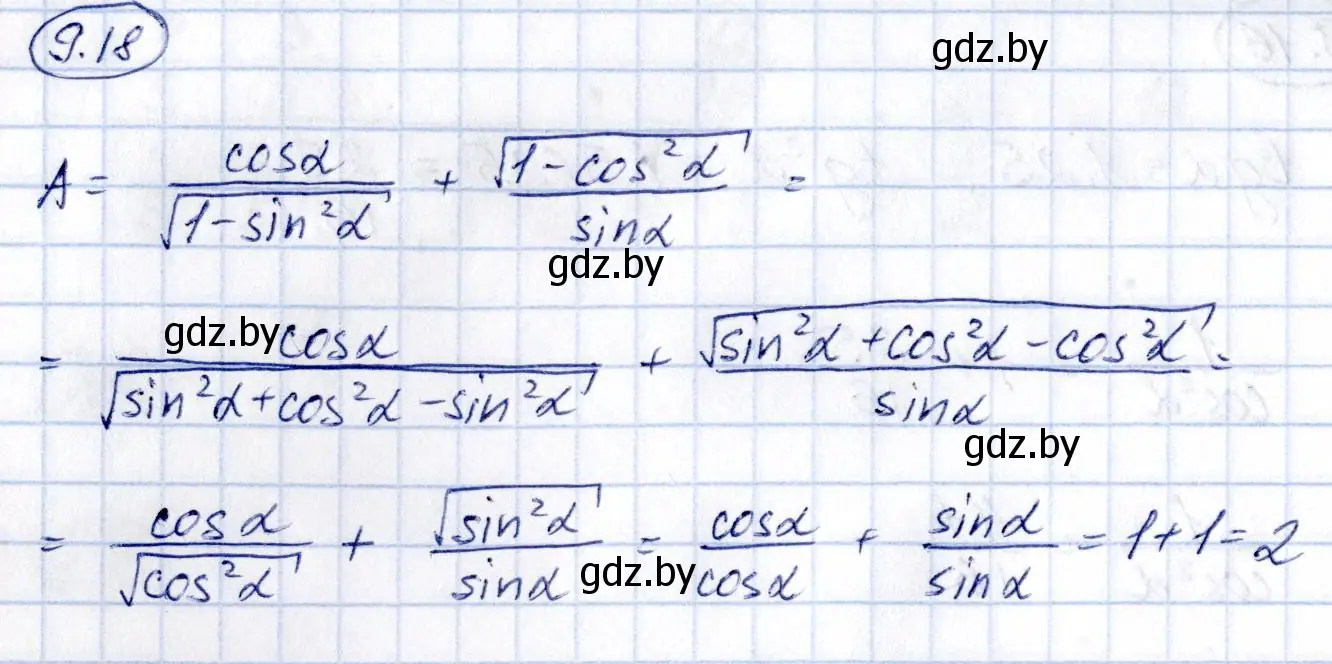 9.18
gdz.by
A = cosα/√(1-sin²α) + √(1-cos²α)/sinα =
gdz.by
gdz.by
= cosα/√(sin²α+cos²α-sin²α) + √(sin²α+cos²α-cos²α)/sinα =
gdz.by
= cosα/√(cos²α) + √(sin²α)/sinα = cosα/cosα + sinα/sinα = 1+1=2
gdz.by